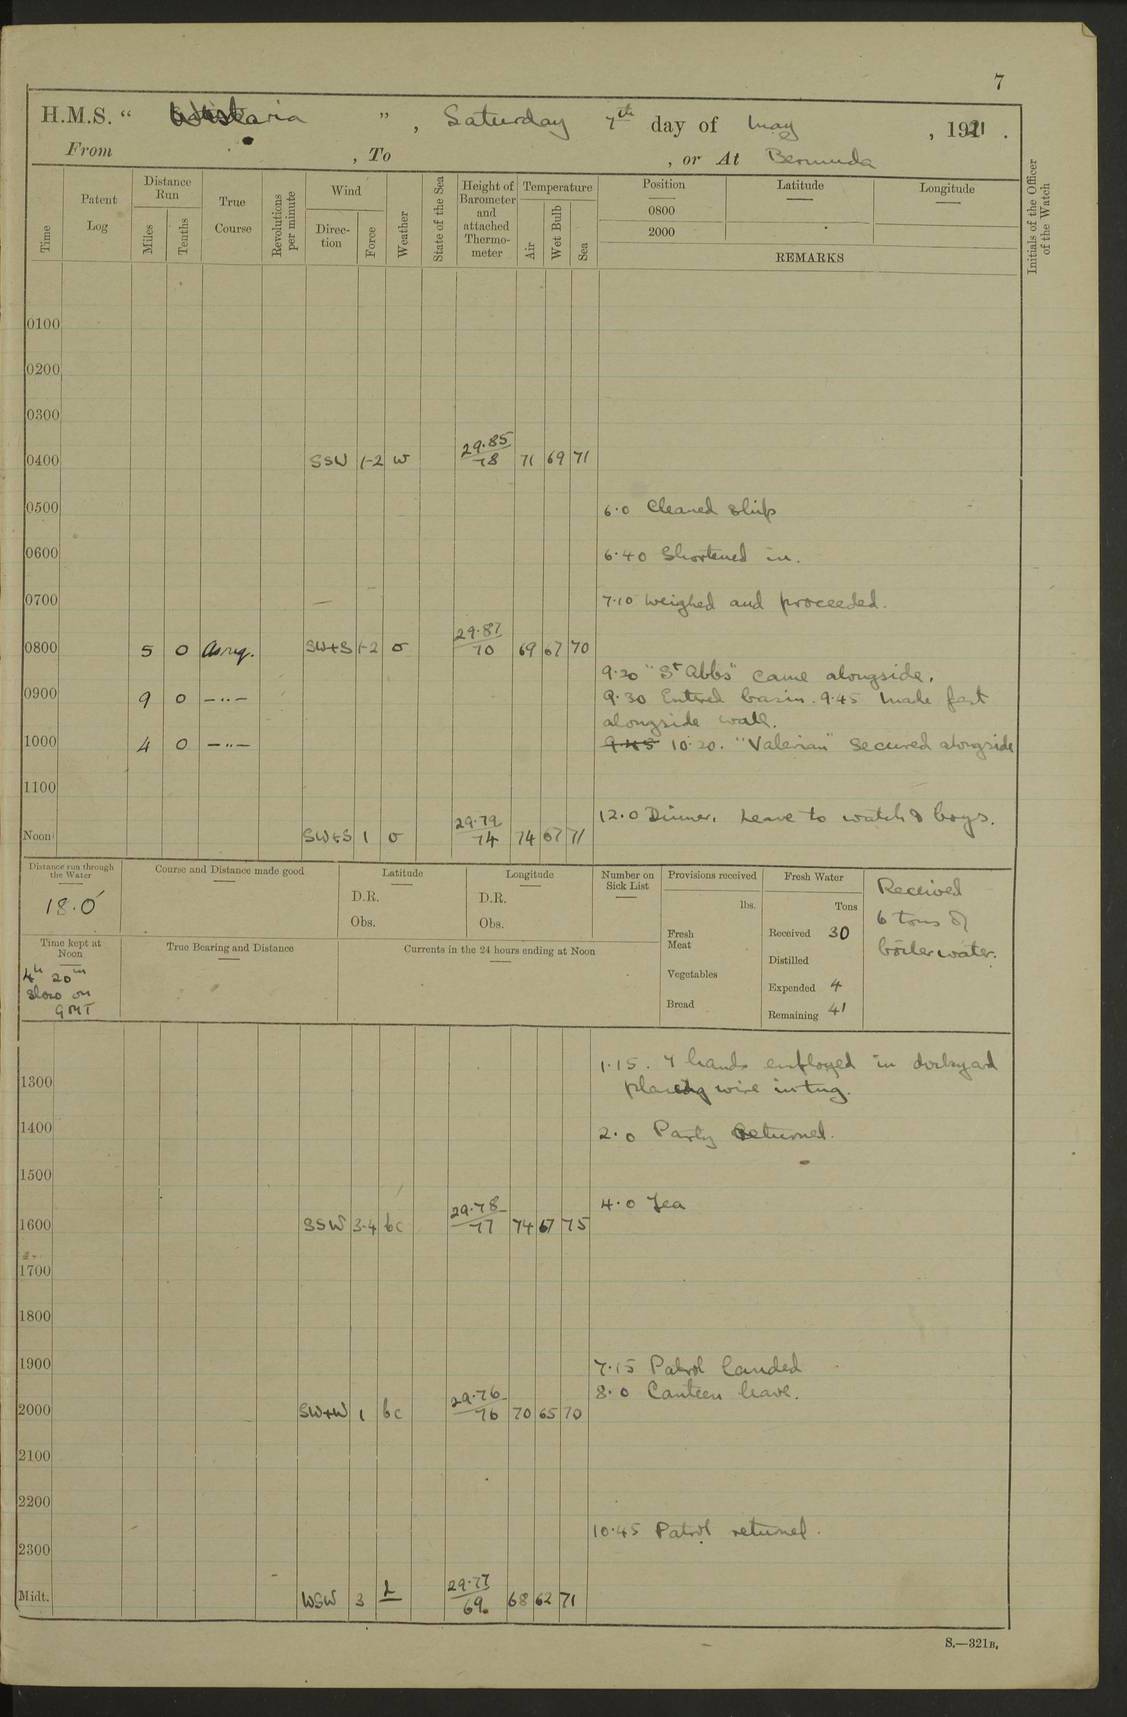 7
H.M.S. " Wistaria ", Saturday 7th day of May, 1921.
From , To , or At Bermuda
Time
Patent Log
Distance Run
Miles
Tenths
True Course
Revolutions per minute
Wind
Direc-tion
Force
Weather
State of the Sea
Height of Barometer and attached Thermo-meter
Temperature
Air
Wet Bulb
Sea
Position
0800
2000
Latitude
Longitude
REMARKS
Initials of the Officer of the Watch
0100
0200
0300
0400 SSW 1-2 w 29.85 78 71 69 71
0500 6.0 Cleaned Ship
0600 6.40 Shortened in.
0700 7.10 Weighed and proceeded.
0800 5 0 SW+S 1-2 o 29.87 70 69 67 70
9.20 "St Abbs" came alongside.
0900 9 0 —"— 9.30 Entered basin. 9.45 Made fast
alongside wall.
1000 4 0 —"— 9.45 10.20. "Valerian" Secured alongside
1100
12.0 Dinner. Leave to watch & boys.
Noon SW+S 1 o 29.79 74 74 67 71
Distance run through the Water
18.0
Course and Distance made good
Latitude
D.R.
Obs.
Longitude
D.R.
Obs.
Number on Sick List
Provisions received
lbs.
Fresh Meat
Vegetables
Bread
Fresh Water
Tons
Received 30
Distilled
Expended 4
Remaining 41
Received
6 tons of
boiler water.
Time kept at Noon
4h 20m
slow on
GMT
True Bearing and Distance
Currents in the 24 hours ending at Noon
1.15. 4 hands employed in dockyard
1300 placing wire in tug.
1400 2.0 Party returned.
1500
4.0 Tea
1600 SSW 3-4 bc 29.78 77 74 67 75
1700
1800
1900 7.15 Patrol landed
8.0 Canteen leave.
2000 SW+W 1 bc 29.76 76 70 65 70
2100
2200
10.45 Patrol returned.
2300
Midt. WSW 3 29.77 69 68 62 71
S.—321B.